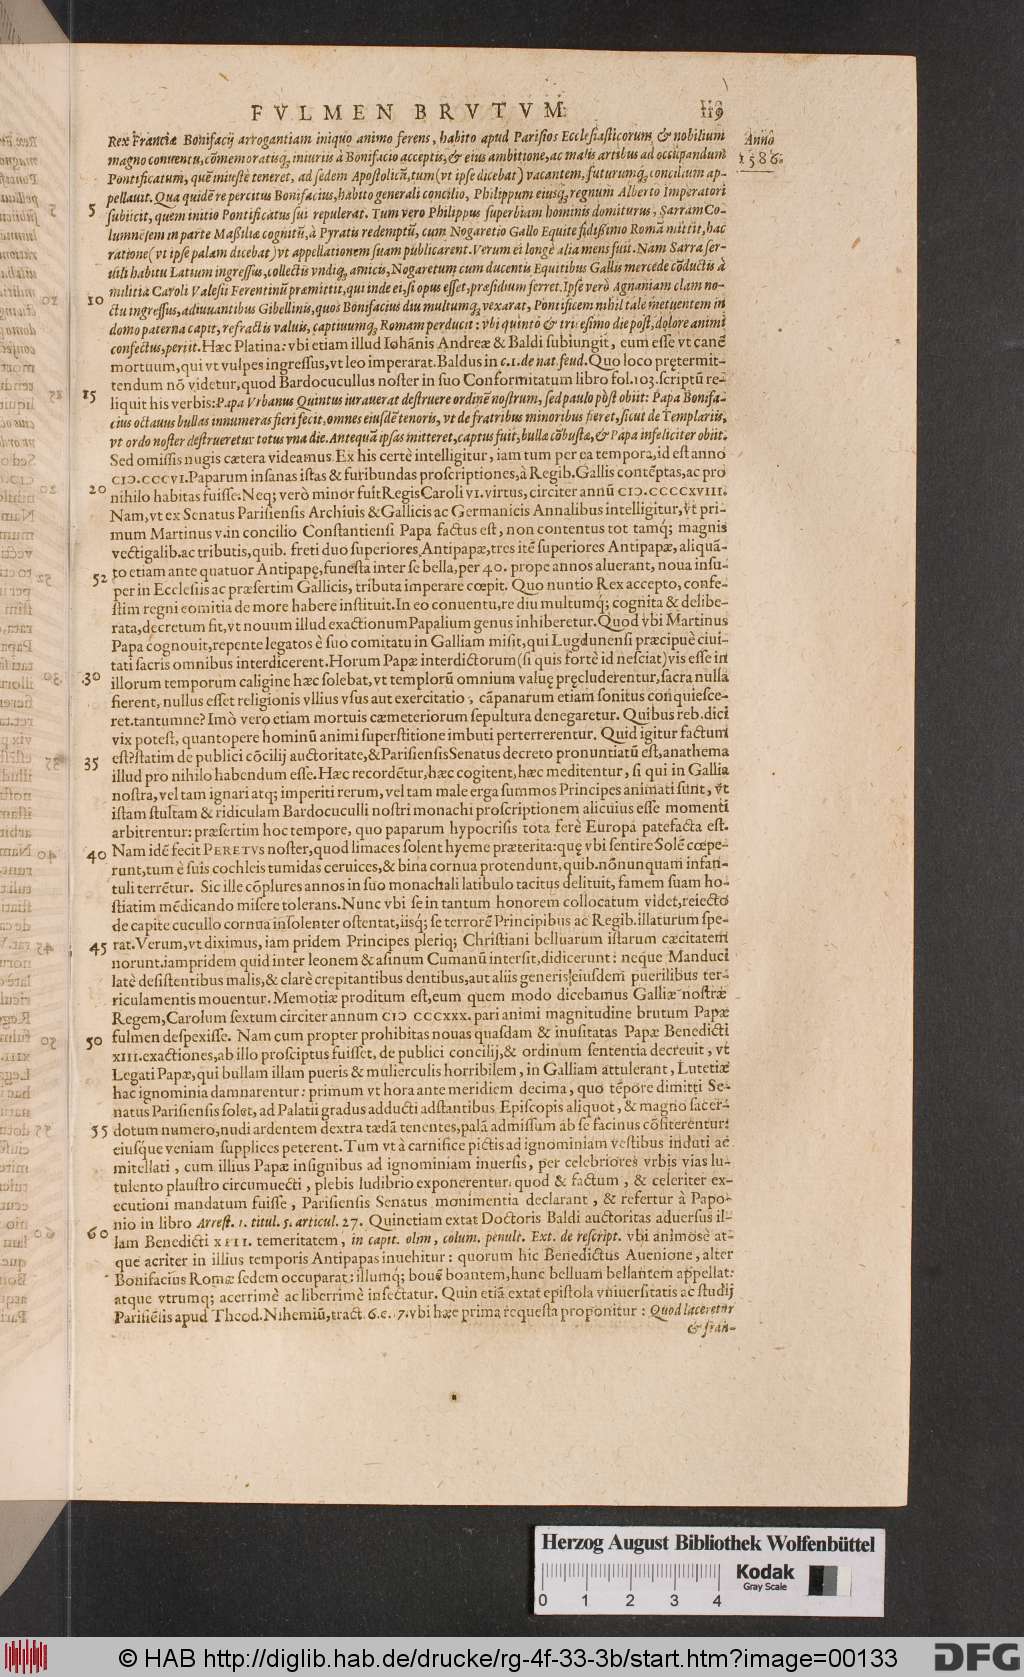 FVLMEN BRVTVM. 119
Anno
1586.
Rex Franciæ Bonifacij arrogantiam iniquo animo ferens, habito apud Parisios Ecclesiasticorum & nobilium
magno conuentu, cōmemoratisq; iniuriis à Bonifacio acceptis, & eius ambitione, ac malis artibus ad occupandum
Pontificatum, quē iniustè teneret, ad sedem Apostolicā, tum (vt ipse dicebat) vacantem, futurumq; concilium ap-
pellauit. Qua quidē re percitus Bonifacius, habito generali concilio, Philippum eiusq; regnum Alberto Imperatori
5 subiicit, quem initio Pontificatus sui repulerat. Tum vero Philippus superbiam hominis domiturus, Sarram Co-
lumnēsem in parte Maßiliæ cognitū, à Pyratis redemptū, cum Nogaretio Gallo Equite fidißimo Romā mittit, hac
ratione (vt ipse palam dicebat) vt appellationem suam publicarent. Verum ei longè alia mens fuit. Nam Sarra ser-
uili habitu Latium ingressus, collectis vndiq; amicis, Nogaretum cum ducentis Equitibus Gallis mercede cōductis à
militia Caroli Valesii Ferentinū præmittit, qui inde ei, si opus esset, præsidium ferret. Ipse verò Agnaniam clam no-
10 ctu ingressus, adiuuantibus Gibellinis, quos Bonifacius diu multumq; vexarat, Pontificem nihil tale metuentem in
domo paterna capit, refractis valuis, captiuumq; Romam perducit: vbi quinto & tricesimo die pòst, dolore animi
confectus, periit. Hæc Platina: vbi etiam illud Iohānis Andreæ & Baldi subiungit, eum esse vt canē
mortuum, qui vt vulpes ingressus, vt leo imperarat. Baldus in c. 1. de nat. feud. Quo loco prętermit-
tendum nō videtur, quod Bardocucullus noster in suo Conformitatum libro fol. 103. scriptū re-
15 liquit his verbis: Papa Vrbanus Quintus iurauerat destruere ordinē nostrum, sed paulo pòst obiit: Papa Bonifa-
cius octauus bullas innumeras fieri fecit, omnes eiusdē tenoris, vt de fratribus minoribus fieret, sicut de Templariis,
vt ordo noster destrueretur totus vna die. Antequā ipsas mitteret, captus fuit, bullæ cōbustæ, & Papa infeliciter obiit.
Sed omissis nugis cætera videamus. Ex his certè intelligitur, iam tum per ea tempora, id est anno
CIƆ.CCCVI. Paparum insanas istas & furibundas proscriptiones, à Regib. Gallis contēptas, ac pro
20 nihilo habitas fuisse. Neq; verò minor fuit Regis Caroli VI. virtus, circiter annū CIƆ.CCCCXVIII.
Nam, vt ex Senatus Parisiensis Archiuis & Gallicis ac Germanicis Annalibus intelligitur, vt pri-
mum Martinus V. in concilio Constantiensi Papa factus est, non contentus tot tamq; magnis
vectigalib. ac tributis, quib. freti duo superiores Antipapæ, tres itē superiores Antipapæ, aliquā-
to etiam ante quatuor Antipapę, funesta inter se bella, per 40. prope annos aluerant, noua insu-
52 per in Ecclesiis ac præsertim Gallicis, tributa imperare cœpit. Quo nuntio Rex accepto, confe-
stim regni comitia de more habere instituit. In eo conuentu, re diu multumq; cognita & delibe-
rata, decretum fit, vt nouum illud exactionum Papalium genus inhiberetur. Quod vbi Martinus
Papa cognouit, repente legatos è suo comitatu in Galliam misit, qui Lugdunensi præcipuè ciui-
tati sacris omnibus interdicerent. Horum Papæ interdictorum (si quis fortè id nesciat) vis esse in
30 illorum temporum caligine hæc solebat, vt templorū omnium valuę pręcluderentur, sacra nulla
fierent, nullus esset religionis vllius vsus aut exercitatio, cāpanarum etiam sonitus conquiesce-
ret. tantumne? Imò vero etiam mortuis cæmeteriorum sepultura denegaretur. Quibus reb. dici
vix potest, quantopere hominū animi superstitione imbuti perterrerentur. Quid igitur factum
est? statim de publici cōcilij auctoritate, & Parisiensis Senatus decreto pronuntiatū est, anathema
35 illud pro nihilo habendum esse. Hæc recordētur, hæc cogitent, hæc meditentur, si qui in Gallia
nostra, vel tam ignari atq; imperiti rerum, vel tam male erga summos Principes animati sunt, vt
istam stultam & ridiculam Bardocuculli nostri monachi proscriptionem alicuius esse momenti
arbitrentur: præsertim hoc tempore, quo paparum hypocrisis tota ferè Europa patefacta est.
40 Nam idē fecit PERETVS noster, quod limaces solent hyeme præterita: quę vbi sentire Solē cœpe-
runt, tum è suis cochleis tumidas ceruices, & bina cornua protendunt, quib. nōnunquam infan-
tuli terrētur. Sic ille cōplures annos in suo monachali latibulo tacitus delituit, famem suam ho-
stiatim mēdicando misere tolerans. Nunc vbi se in tantum honorem collocatum videt, reiecto
de capite cucullo cornua insolenter ostentat, iisq; se terrorē Principibus ac Regib. illaturum spe-
45 rat. Verum, vt diximus, iam pridem Principes pleriq; Christiani belluarum istarum cæcitatem
norunt. iampridem quid inter leonem & asinum Cumanū intersit, didicerunt: neque Manduci
latè desistentibus malis, & clarè crepitantibus dentibus, aut aliis generis eiusdem puerilibus ter-
riculamentis mouentur. Memoriæ proditum est, eum quem modo dicebamus Galliæ nostræ
Regem, Carolum sextum circiter annum CIƆ CCCXXX. pari animi magnitudine brutum Papæ
50 fulmen despexisse. Nam cum propter prohibitas nouas quasdam & inusitatas Papæ Benedicti
XIII. exactiones, ab illo prosciptus fuisset, de publici concilij, & ordinum sententia decreuit, vt
Legati Papæ, qui bullam illam pueris & mulierculis horribilem, in Galliam attulerant, Lutetiæ
hac ignominia damnarentur: primum vt hora ante meridiem decima, quo tēpore dimitti Se-
natus Parisiensis solet, ad Palatii gradus adducti adstantibus Episcopis aliquot, & magno sacer-
55 dotum numero, nudi ardentem dextra tædā tenentes, palā admissum ab se facinus cōfiterentur:
eiusque veniam supplices peterent. Tum vt à carnifice pictis ad ignominiam vestibus induti ac
mitellati, cum illius Papæ insignibus ad ignominiam inuersis, per celebriores vrbis vias lu-
tulento plaustro circumuecti, plebis ludibrio exponerentur. quod & factum, & celeriter ex-
ecutioni mandatum fuisse, Parisiensis Senatus monimentia declarant, & refertur à Papo-
60 nio in libro Arrest. 1. titul. 5. articul. 27. Quinetiam extat Doctoris Baldi auctoritas aduersus il-
lam Benedicti XIII. temeritatem, in capit. olim, colum. penult. Ext. de rescript. vbi animosè at-
que acriter in illius temporis Antipapas inuehitur: quorum hic Benedictus Auenione, alter
Bonifacius Romæ sedem occuparat: illumq; bouē boantem, hunc belluam bellantem appellat:
atque vtrumq; acerrimè ac liberrimè insectatur. Quin etiā extat epistola vniuersitatis ac studij
Parisiēsis apud Theod. Nihemiū, tract. 6. c. 17. vbi hæc prima requesta proponitur: Quod laceretur
& fran-
Herzog August Bibliothek Wolfenbüttel
Kodak
Gray Scale
0 1 2 3 4
© HAB http://diglib.hab.de/drucke/rg-4f-33-3b/start.htm?image=00133
DFG